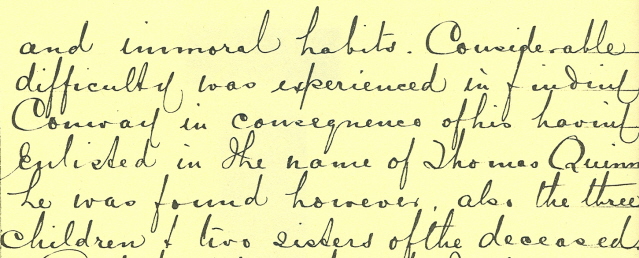 and immoral habits. Considerable
difficulty was experienced in finding
Conway in consequence of his having
Enlisted in the name of Thomas Quinn
he was found however, also the three
children & two sisters of the deceased.